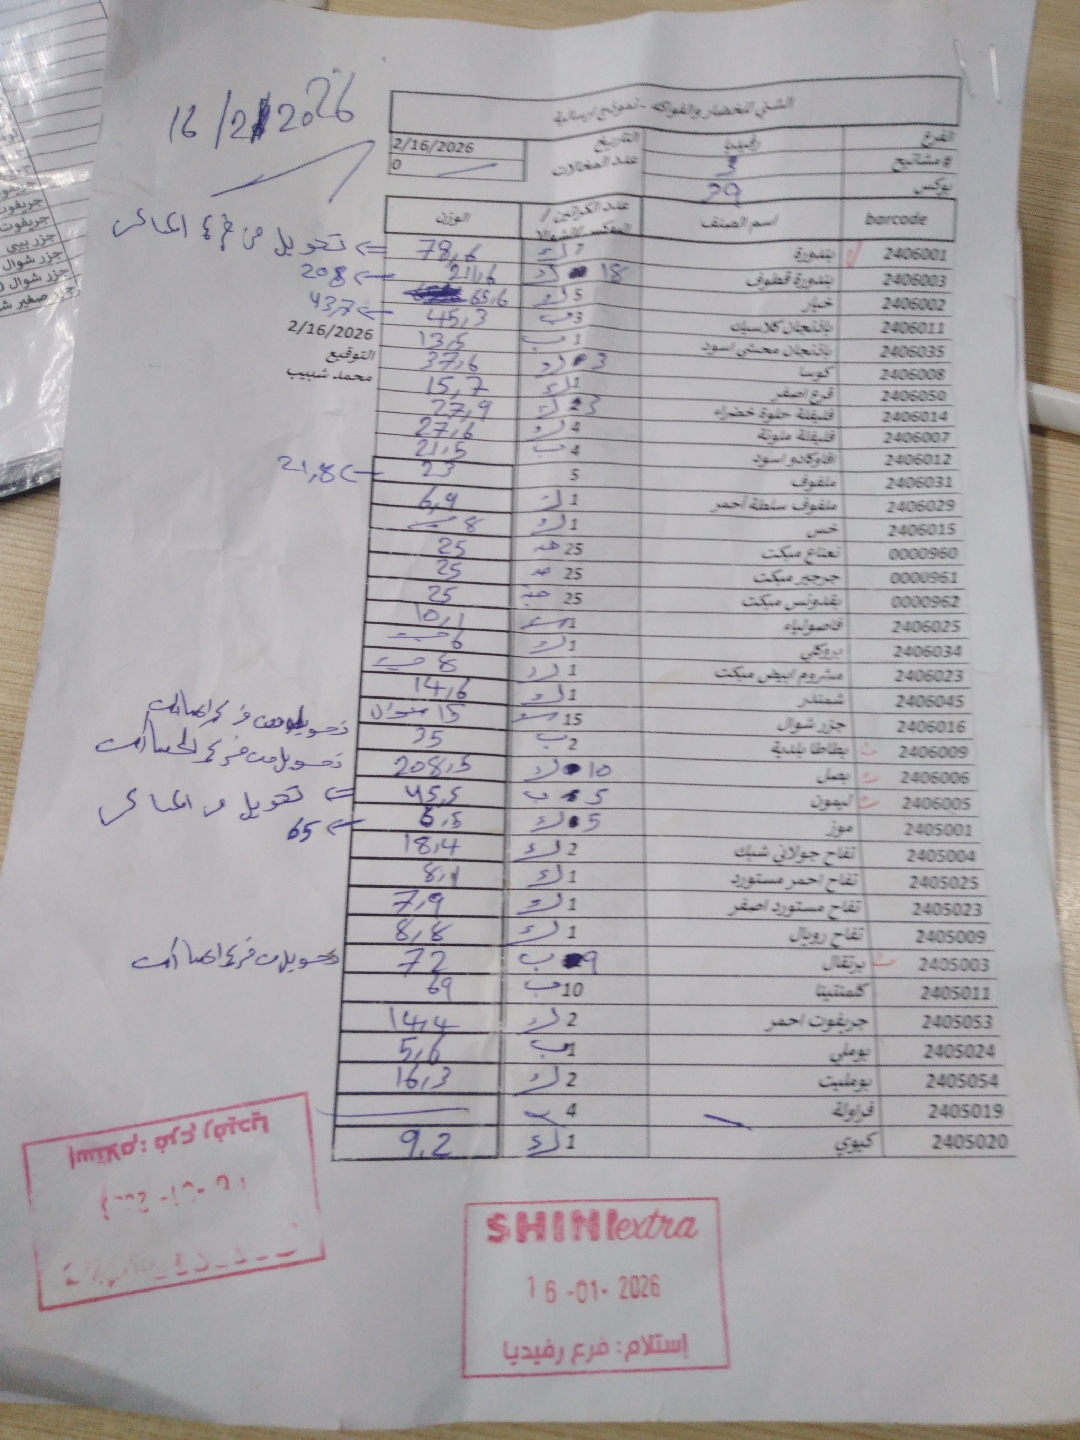 16/2/2026
الشني للخضار والفواكه - نموذج ارسالية
الفرع رفيديا التاريخ 2/16/2026
# مشاتيح 3 عدد المخالات 0
بوكس 29
barcode اسم الصنف عدد الكراتين / البوكس/الشوالا الوزن
2406001 بندورة 7 ك 78,6 <= تحويل من فرع
2406003 بندورة قطوف 18 ك 211,6 <- 208
2406002 خيار 5 ك 65,6
2406011 باذنجان كلاسيك 3 ب 45,3 <- 43,7
2406035 باذنجان محشي اسود 1 ب 13,5
2/16/2026
2406008 كوسا 3 ك 37,6
التوقيع
2406050 قرع اصفر 1 ك 15,7
محمد شبيب
2406014 فليفلة حلوة خضراء 3 ك 27,9
2406007 فليفلة ملونة 4 ك 27,6
2406012 افاوكادو اسود 4 ب 21,5
2406031 ملفوف 5 23 <- 21,8
2406029 ملفوف سلطة أحمر 1 ك 6,9
2406015 خس 1 ك 8
0000960 نعناع مبكت 25 25
0000961 جرجير مبكت 25 25
0000962 بقدونس مبكت 25 25
2406025 فاصولياء 1 10,1
2406034 بروكلي 1 ك 6
2406023 مشروم ابيض مبكت 1 ك 8
2406045 شمندر 1 ك 14,6
2406016 جزر شوال 15 15 شوال
2406009 بطاطا بلدية 2 ب 35
2406006 بصل 10 ك 208,5 تحويل من فرع
2406005 ليمون 5 ب 45,5 <= تحويل من
2405001 موز 5 ك 6,5 <- 65
2405004 تفاح جولاني شبك 2 ك 18,4
2405025 تفاح احمر مستورد 1 ك 8,1
2405023 تفاح مستورد اصفر 1 ك 7,9
2405009 تفاح رويال 1 ك 8,8
2405003 برتقال 9 ب 72 تحويل من فرع
2405011 كلمنتينا 10 ب 69
2405053 جريفوت احمر 2 ك 14,4
2405024 بوملي 1 ب 5,6
2405054 بومليت 2 ك 16,3
2405019 فراولة 4
2405020 كيوي 1 ك 9,2
SHINI extra
16-01-2026
إستلام: فرع رفيديا